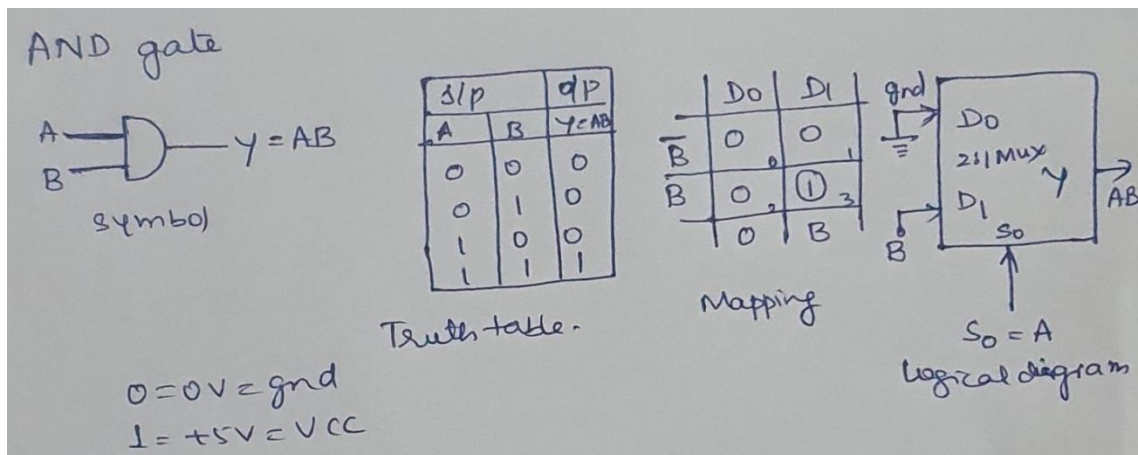 AND gate
A
B
Y = AB
symbol
I/p O/p
A B Y=AB
0 0 0
0 1 0
1 0 0
1 1 1
Truth table.
D0 D1
B̅ 0 0 0 1
B 0 2 1 3
0 B
Mapping
gnd
D0
2:1 MUX
Y
D1
S0
B
AB
S0 = A
Logical diagram
0 = 0V = gnd
1 = +5V = VCC